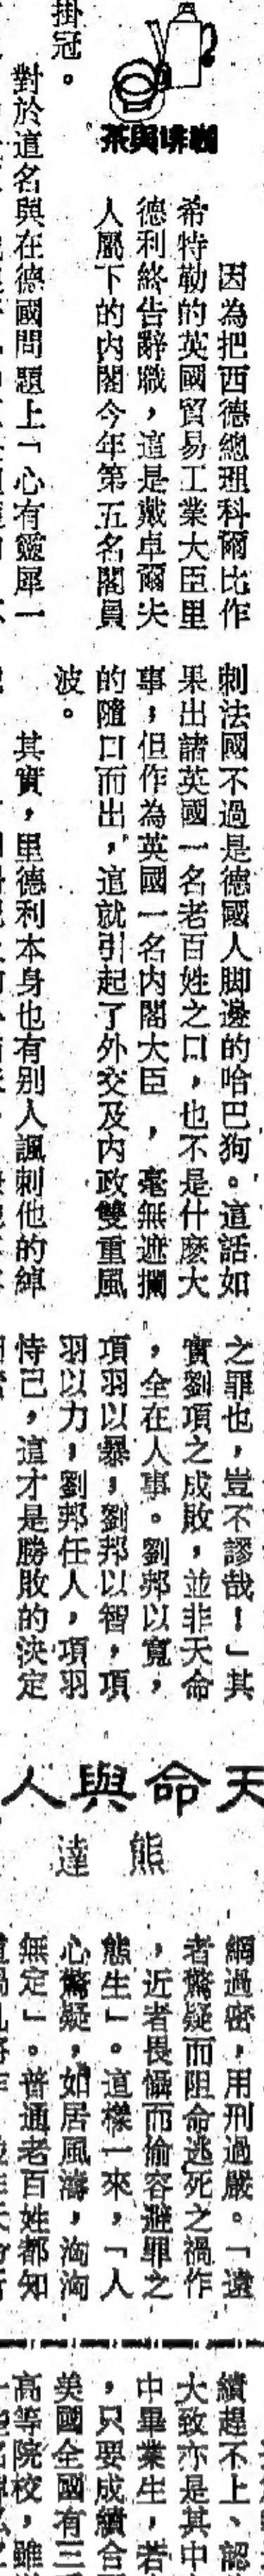 咖啡與茶
因為把西德總理科爾比作
希特勒的英國貿易工業大臣里
德利終告辭職，這是戴卓爾夫
人屬下的內閣今年第五名閣員
掛冠。
對於這名與在德國問題上「心有靈犀一
刺法國不過是德國人脚邊的哈巴狗。這話如
果出諸英國一名老百姓之口，也不是什麼大
事；但作為英國一名內閣大臣，毫無遮攔
的隨口而出，這就引起了外交及內政雙重風
波。
其實，里德利本身也有別人諷刺他的綽
之罪也，豈不謬哉！」其
實劉項之成敗，並非天命
，全在人事。劉邦以寬，
項羽以暴，劉邦以智，項
羽以力，劉邦任人，項羽
恃己，這才是勝敗的決定
天命與人
熊達
網過密，用刑過嚴。「遠
者驚疑而阻命逃死之禍作
，近者畏懾而偷容避罪之
態生」。這樣一來，「人
心驚疑，如居風濤，洶洶
無定」。普通老百姓都知
績趕不上、認
大致亦是其中
中畢業生，若
，只要成績合
美國全國有三
高等院校，雖